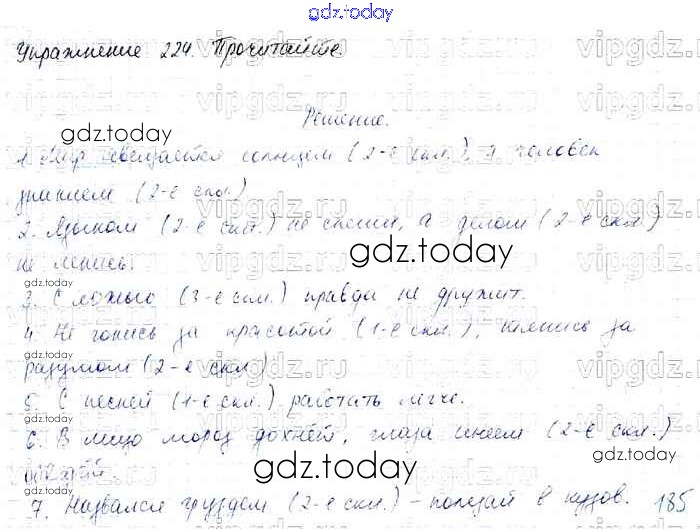 gdz.today
Упражнение 224. Прочитайте.
Решение.
1. Мир освещается солнцем (2-е скл.), а человек
знанием (2-е скл.)
2. Языком (2-е скл.) не спеши, а делом (2-е скл.)
не ленись.
3. С ложью (3-е скл.) правда не дружит.
4. Не гонись за красотой (1-е скл.), гонись за
разумом (2-е скл.)
5. С песней (1-е скл.) работать легче.
6. В лицо мороз дохнёт, глаза инеем (2-е скл.)
7. Назвался груздем (2-е скл.) – полезай в кузов. 185
vipgdz.ru
gdz.today